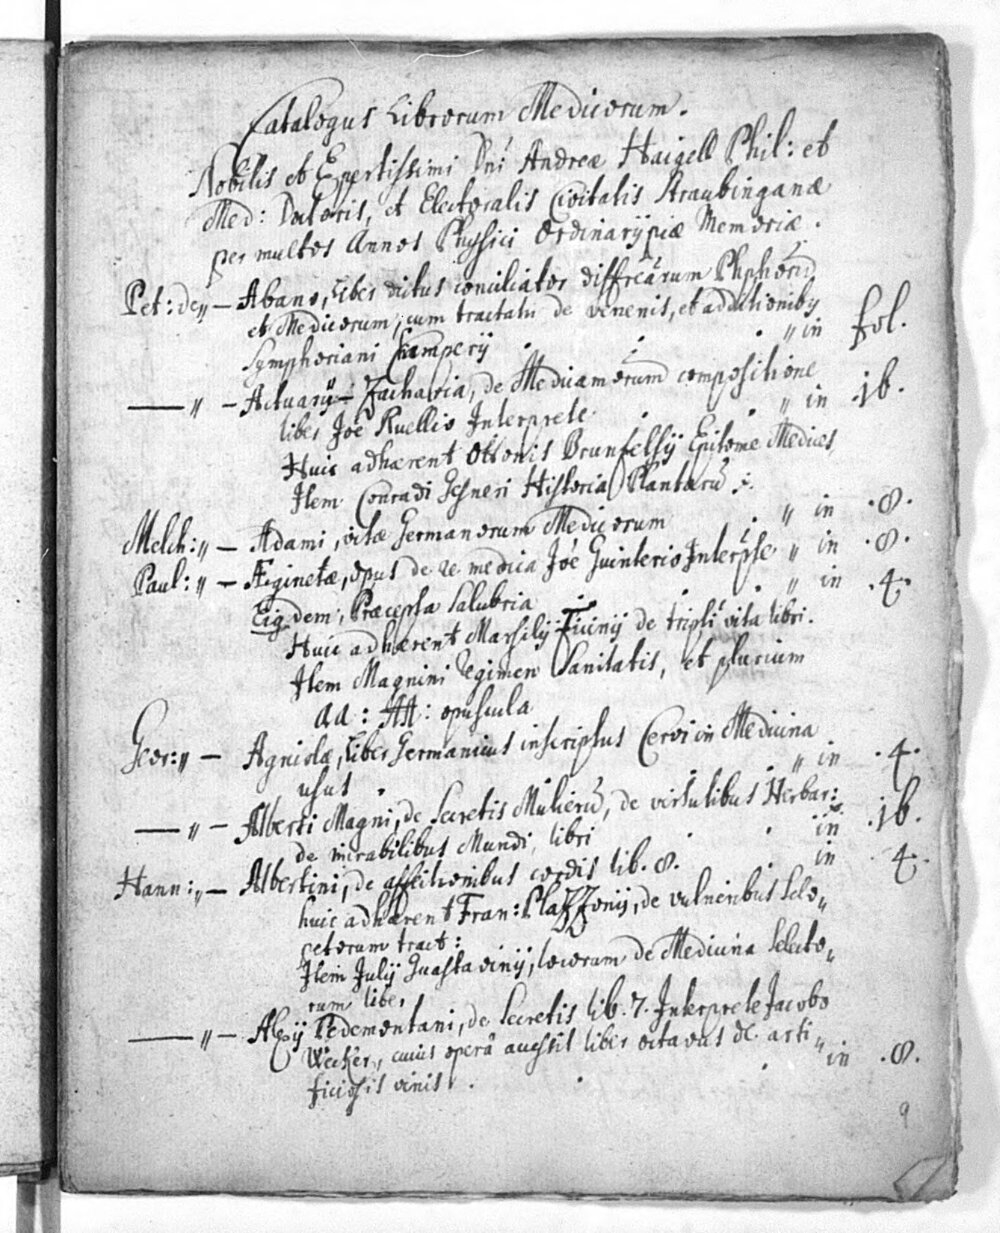 Catalogus Librorum Medicorum.
Nobilis et Expertissimi Dni Andreæ Haigell Phil: et
Med: Doctoris, et Electoralis Civitatis Straubinganæ
per multos Annos Physici Ordinarÿ piæ Memoriæ.
Pet: de „ — Abano, Liber dictus conciliator differarum
et Medicorum, cum tractatu de venenis, et additionibq
Symphoriani Champerÿ . . . „ in fol.
— „ — Actuarÿ — Zachariæ, de Medicamtorum compositione
liber Joē Ruellio Interprete . . . „ in .16.
Huic adhærent Ottonis Brunfelsÿ Epitome Medices,
Item Conradi Gesneri Historia Plantarū . . „ in .8.
Melch: „ — Adami, vitæ Germanorum Medicorum „ in .8.
Paul: „ — Æginetæ, opus de re medica Joē Guinterio Interpte „ in .4.
Eiqdem, Præcepta Salubria . . .
Huic adhærent Marsilÿ Ficinÿ de tripli vita libri.
Item Magnini Regimen Sanitatis, et plurium
aa: AA: opuscula
Geor: „ — Agricolæ, Liber Germanicus inscriptus Cervi in Medicina
usus . . „ in .4.
— „ — Alberti Magni, de Secretis Mulierū, de virtutibus Herbar:
de mirabilibus Mundi, libri . . in .16.
Hann: „ — Albertini, de affectionibus cordis lib. 8. . in .4.
huic adhærent Fran: Plazzonÿ, de vulneribus Sclo„
petorum tract:
Item Julÿ Guastavinÿ, locorum de Medicina Selecto„
rum liber
— „ — Alexÿ Pedemontani, de Secretis lib. 7. Interprete Jacobo
Wecker, cuius operā accessit liber octavus de arti„
ficiosis vinis . . . in .8.
9